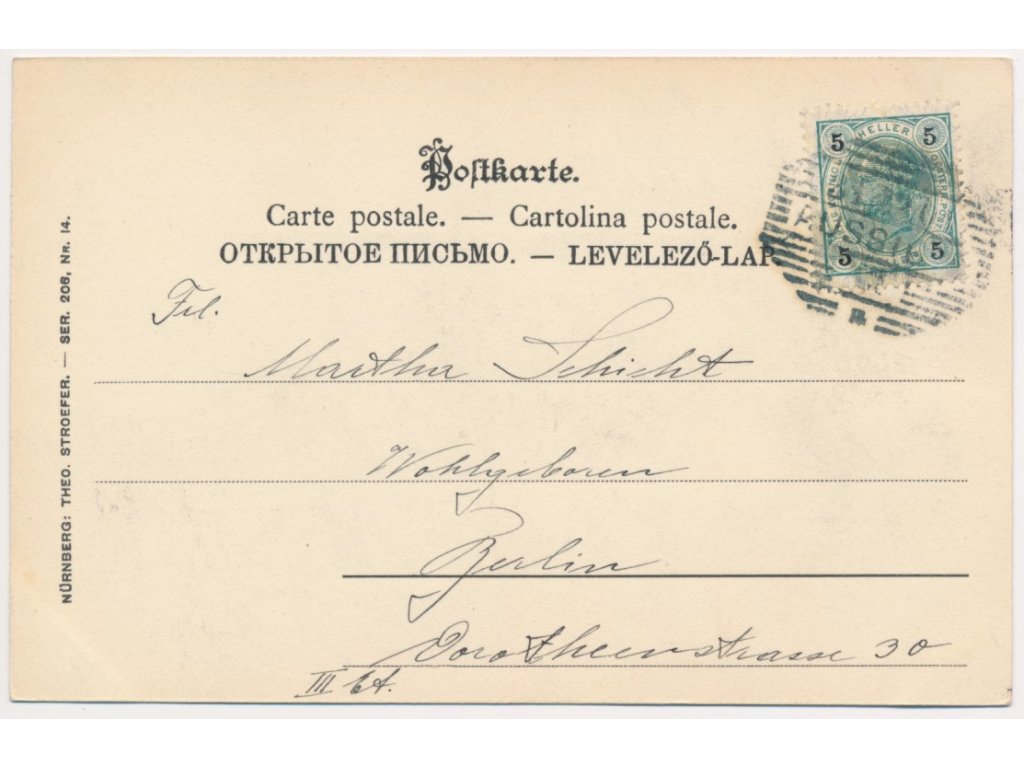 Postkarte.
Carte postale. — Cartolina postale.
ОТКРЫТОЕ ПИСЬМО. — LEVELEZŐ-LAP.
5 HELLER 5
5 5
Frl.
Martha Schicht
Wohlgeboren
Berlin
Dorotheenstrasse 30
III Et.
NÜRNBERG: THEO. STROEFER. — SER. 206, Nr. 14.